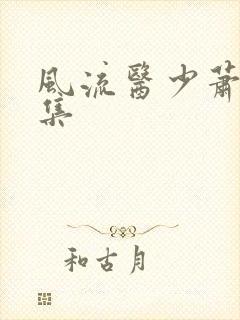 風流醫少蕭
集
和古月